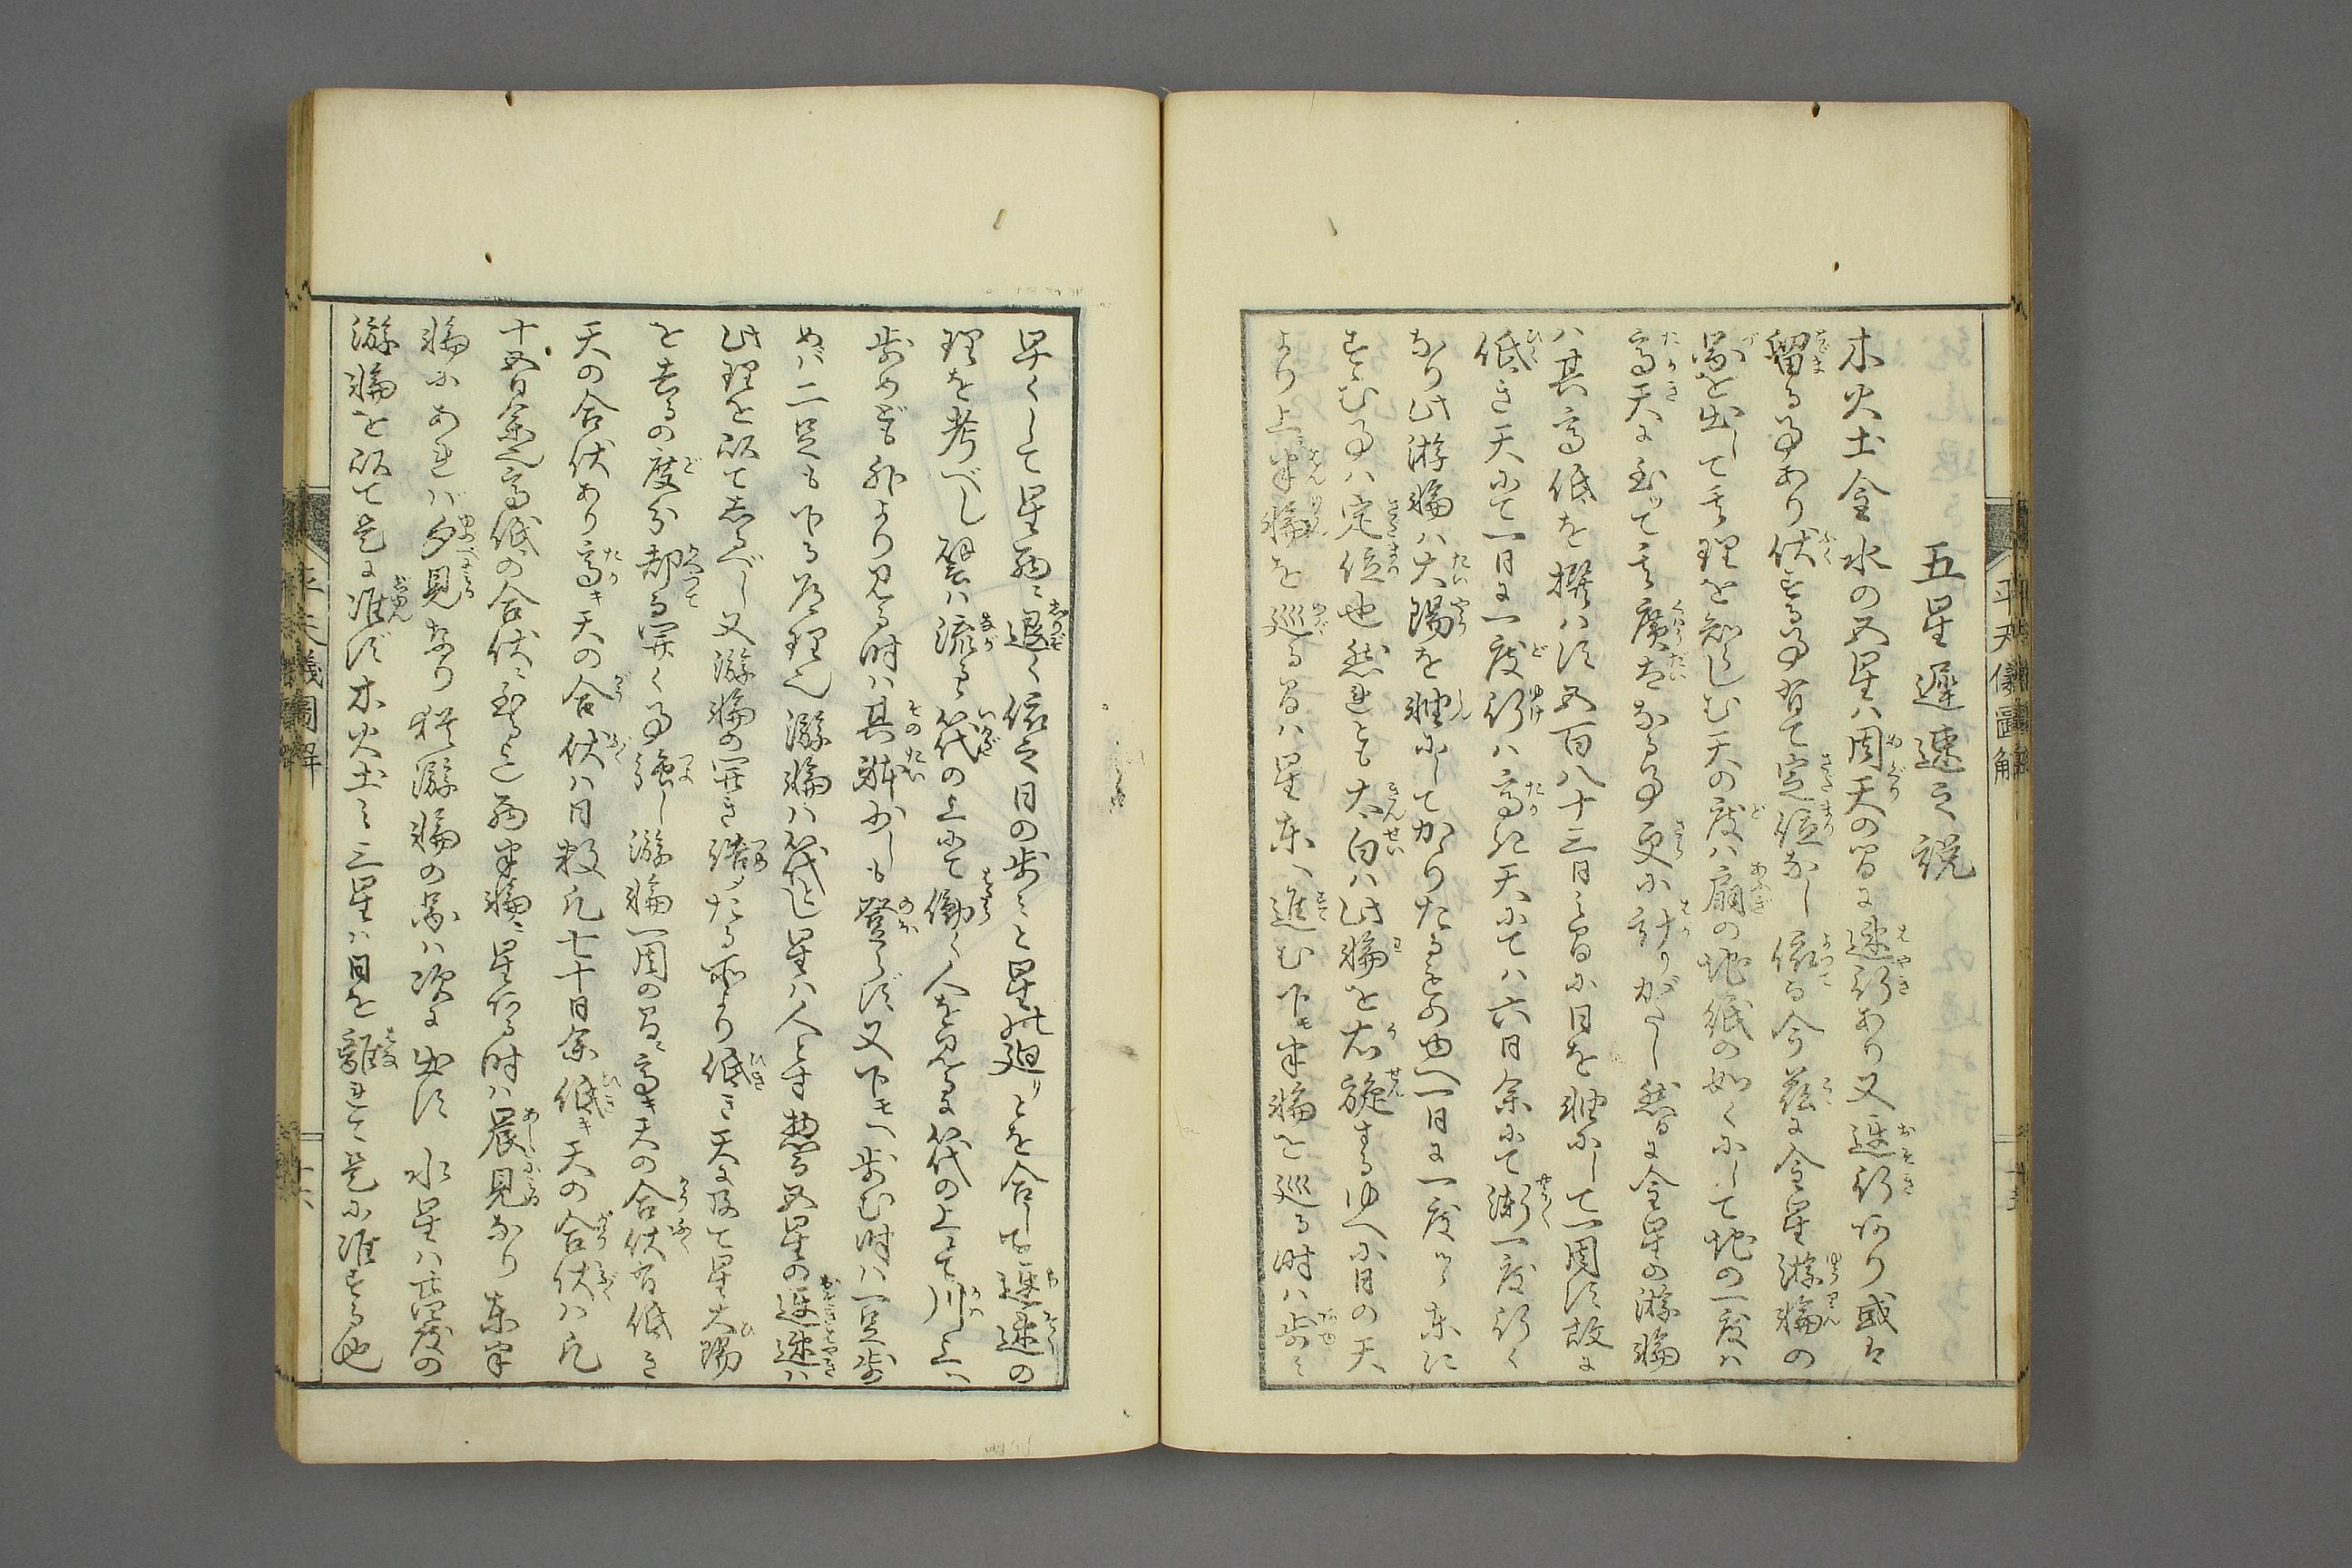 五星遲速之説
木火土金水の五星ハ周天の間に速行あり又遅行あり或は
留る事あり伏する事有て定位なし依而今茲に金星游輪の
図を出して其理を知らしむ天の度ハ扇の地紙の如くにして地の一度ハ
高天に至て其廣大なる事更に計りがたし然るに金星の游輪
ハ其高低を撰ハず五百八十三日之間に日を軸にして一周す故に
低き天にて一日に一度行ハ高き天にてハ六日余にて漸一度行く
なり此游輪ハ大陽を軸にしてかゝりたるものゆへ一日に一度ヅヽ東に
すゝむ事ハ定位也然れども太白ハ此輪を右旋するゆへに日の天
より上ミ半輪を巡る間ハ星東へ進む下モ半輪を巡る時ハ歩ミ
早くして星西ニ退く依之日の歩ミと星の廻りとを合して遅速の
理を考べし譬ハ流るゝ筏の上にて働く人を見るに筏の上にて川上へ
歩めども外より見る時ハ其躰少しも登らず又下モへ歩む時ハ一足歩
めバ二足も下る道理也游輪ハ筏とし星ハ人とす惣而五星の遅速ハ
此理を以て志るべし又游輪の開き結びたる所より低き天に及て星大陽
を去るの度分却而開く事強し游輪一周の間ニ高キ天の合伏有低き
天の合伏あり高キ天の合伏ハ日数凡七十日余低キ天の合伏ハ凡
十五日余也高低の合伏ニ至ると西半輪ニ星ある時ハ晨見なり東半
輪にあれバ夕見なり猶游輪の図ハ次に出す水星ハ此度の
游輪を以て是に准ず木火土之三星ハ日を離れて是に准ずる也
平天儀圖解
十五
平天儀圖解
十六